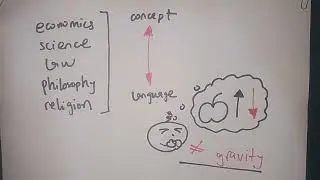 economics
science
law
philosophy
religion
concept
language
≠ gravity